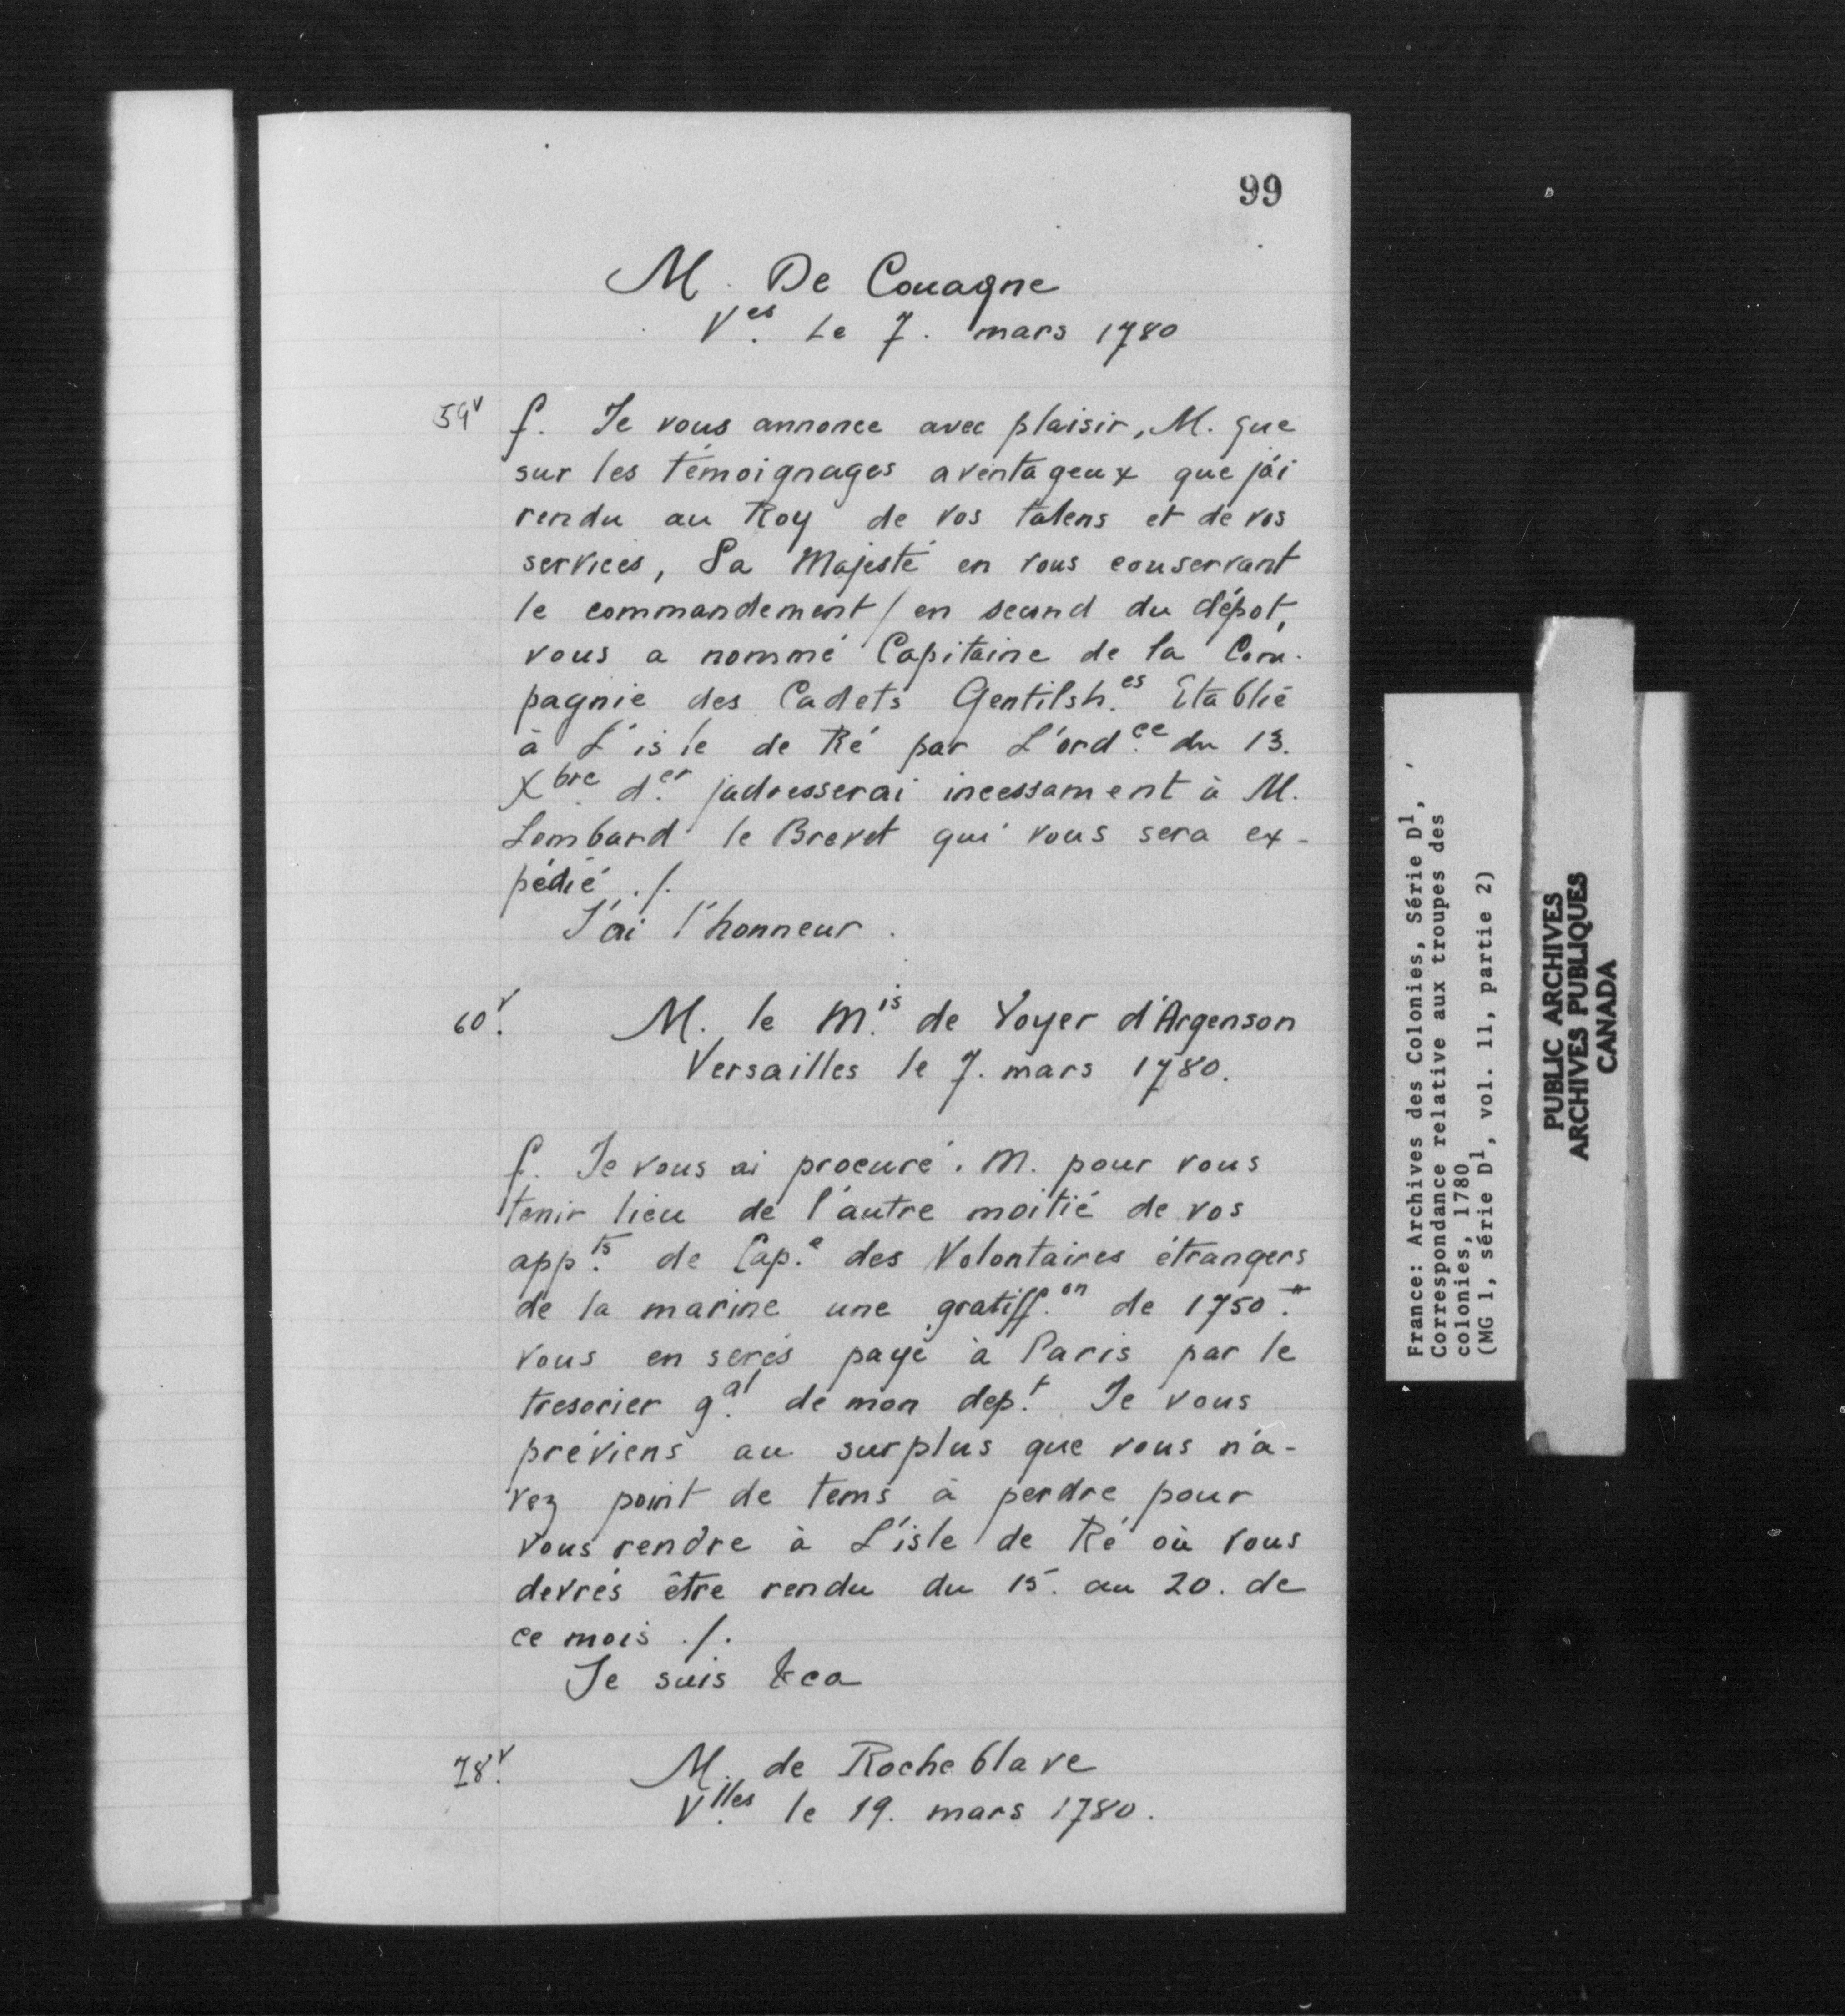 99
M. De Couagne
V.es Le 7. mars 1780
59v f. Je vous annonce avec plaisir, M. que
sur les témoignages aventageux que j'ai
rendu au Roy de vos talens et de vos
services, Sa Majesté en vous conservant
le commandement en second du dépot,
vous a nommé Capitaine de la Com-
pagnie des Cadets Gentilsh.es Etablie
à L'isle de Ré par L'ord.ce du 13.
Xbre d.er j'adresserai incessament à M.
Lombard le Brevet qui vous sera ex-
pédié ./.
J'ai l'honneur.
60v. M. le M.is de Voyer d'Argenson
Versailles le 7. mars 1780.
f. Je vous ai procuré. M. pour vous
tenir lieu de l'autre moitié de vos
app.ts de Cap.e des Volontaires étrangers
de la marine une gratiff.on de 1750.
vous en serés payé à Paris par le
tresorier g.al de mon dep.t Je vous
préviens au surplus que vous n'a-
vez point de tems à perdre pour
vous rendre à L'isle de Ré où vous
devrés être rendu du 15. au 20. de
ce mois ./.
Je suis &ca
78v. M. de Rocheblave
V.lles le 19. mars 1780.
France: Archives des Colonies, Série D1,
Correspondance relative aux troupes des
colonies, 1780
(MG 1, série D1, vol. 11, partie 2)
PUBLIC ARCHIVES
ARCHIVES PUBLIQUES
CANADA